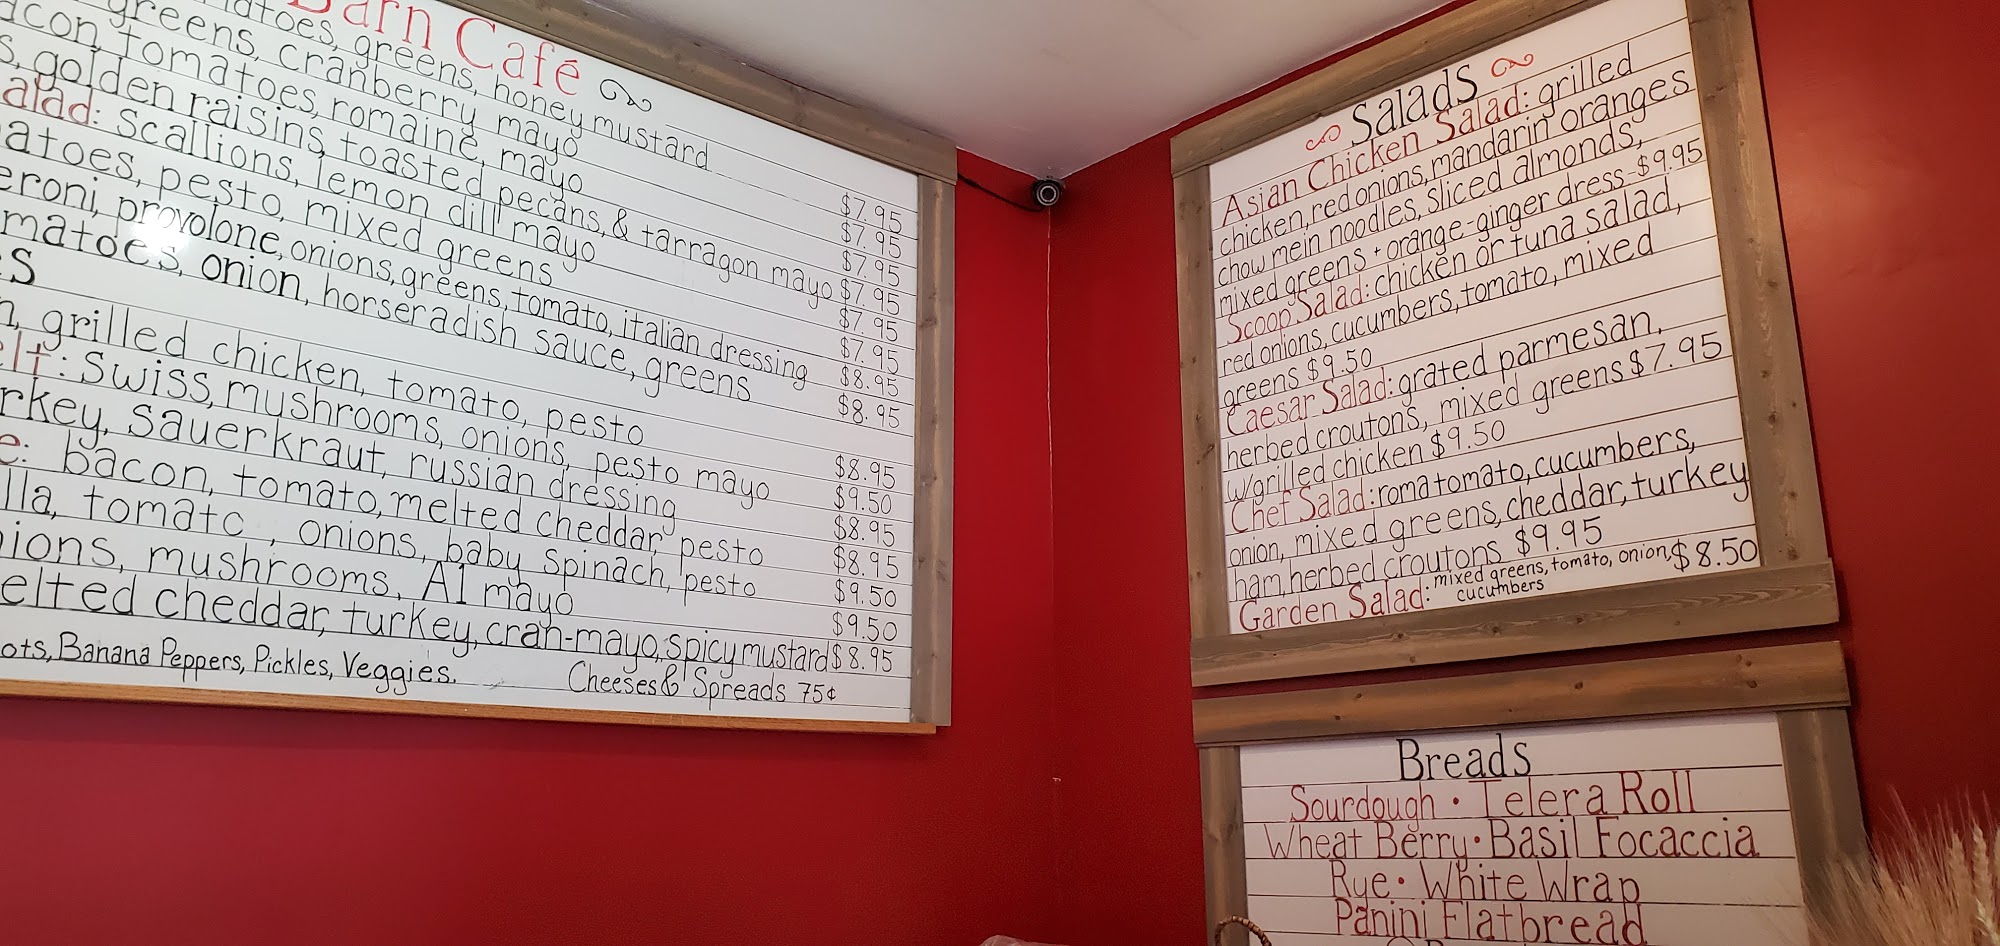 Barn Café
tomatoes, greens, honey mustard
greens, cranberry mayo $7.95
bacon, tomatoes, romaine, mayo $7.95
golden raisins, toasted pecans, & tarragon mayo $7.95
Salad: scallions, lemon dill mayo $7.95
pesto, mixed greens $7.95
provolone, onions, greens, tomato, italian dressing $7.95
onion, horseradish sauce, greens $8.95
$8.95
grilled chicken, tomato, pesto $8.95
Swiss, mushrooms, onions, pesto mayo $9.50
sauerkraut, russian dressing $8.95
bacon, tomato, melted cheddar, pesto $8.95
tomato, onions, baby spinach, pesto $9.50
mushrooms, A1 mayo $9.50
cheddar, turkey, cran-mayo, spicy mustard $8.95
Banana Peppers, Pickles, Veggies. Cheeses & Spreads 75¢
Salads
Asian Chicken Salad: grilled
chicken, red onions, mandarin oranges
chow mein noodles, sliced almonds,
mixed greens + orange-ginger dress-$9.95
Scoop Salad: chicken or tuna salad,
red onions, cucumbers, tomato, mixed
greens $9.50
Caesar Salad: grated parmesan,
herbed croutons, mixed greens $7.95
w/grilled chicken $9.50
Chef Salad: roma tomato, cucumbers,
onion, mixed greens, cheddar, turkey
ham, herbed croutons $9.95
Garden Salad: mixed greens, tomato, onion, $8.50
cucumbers
Breads
Sourdough • Telera Roll
Wheat Berry • Basil Focaccia
Rye • White Wrap
Panini Flatbread